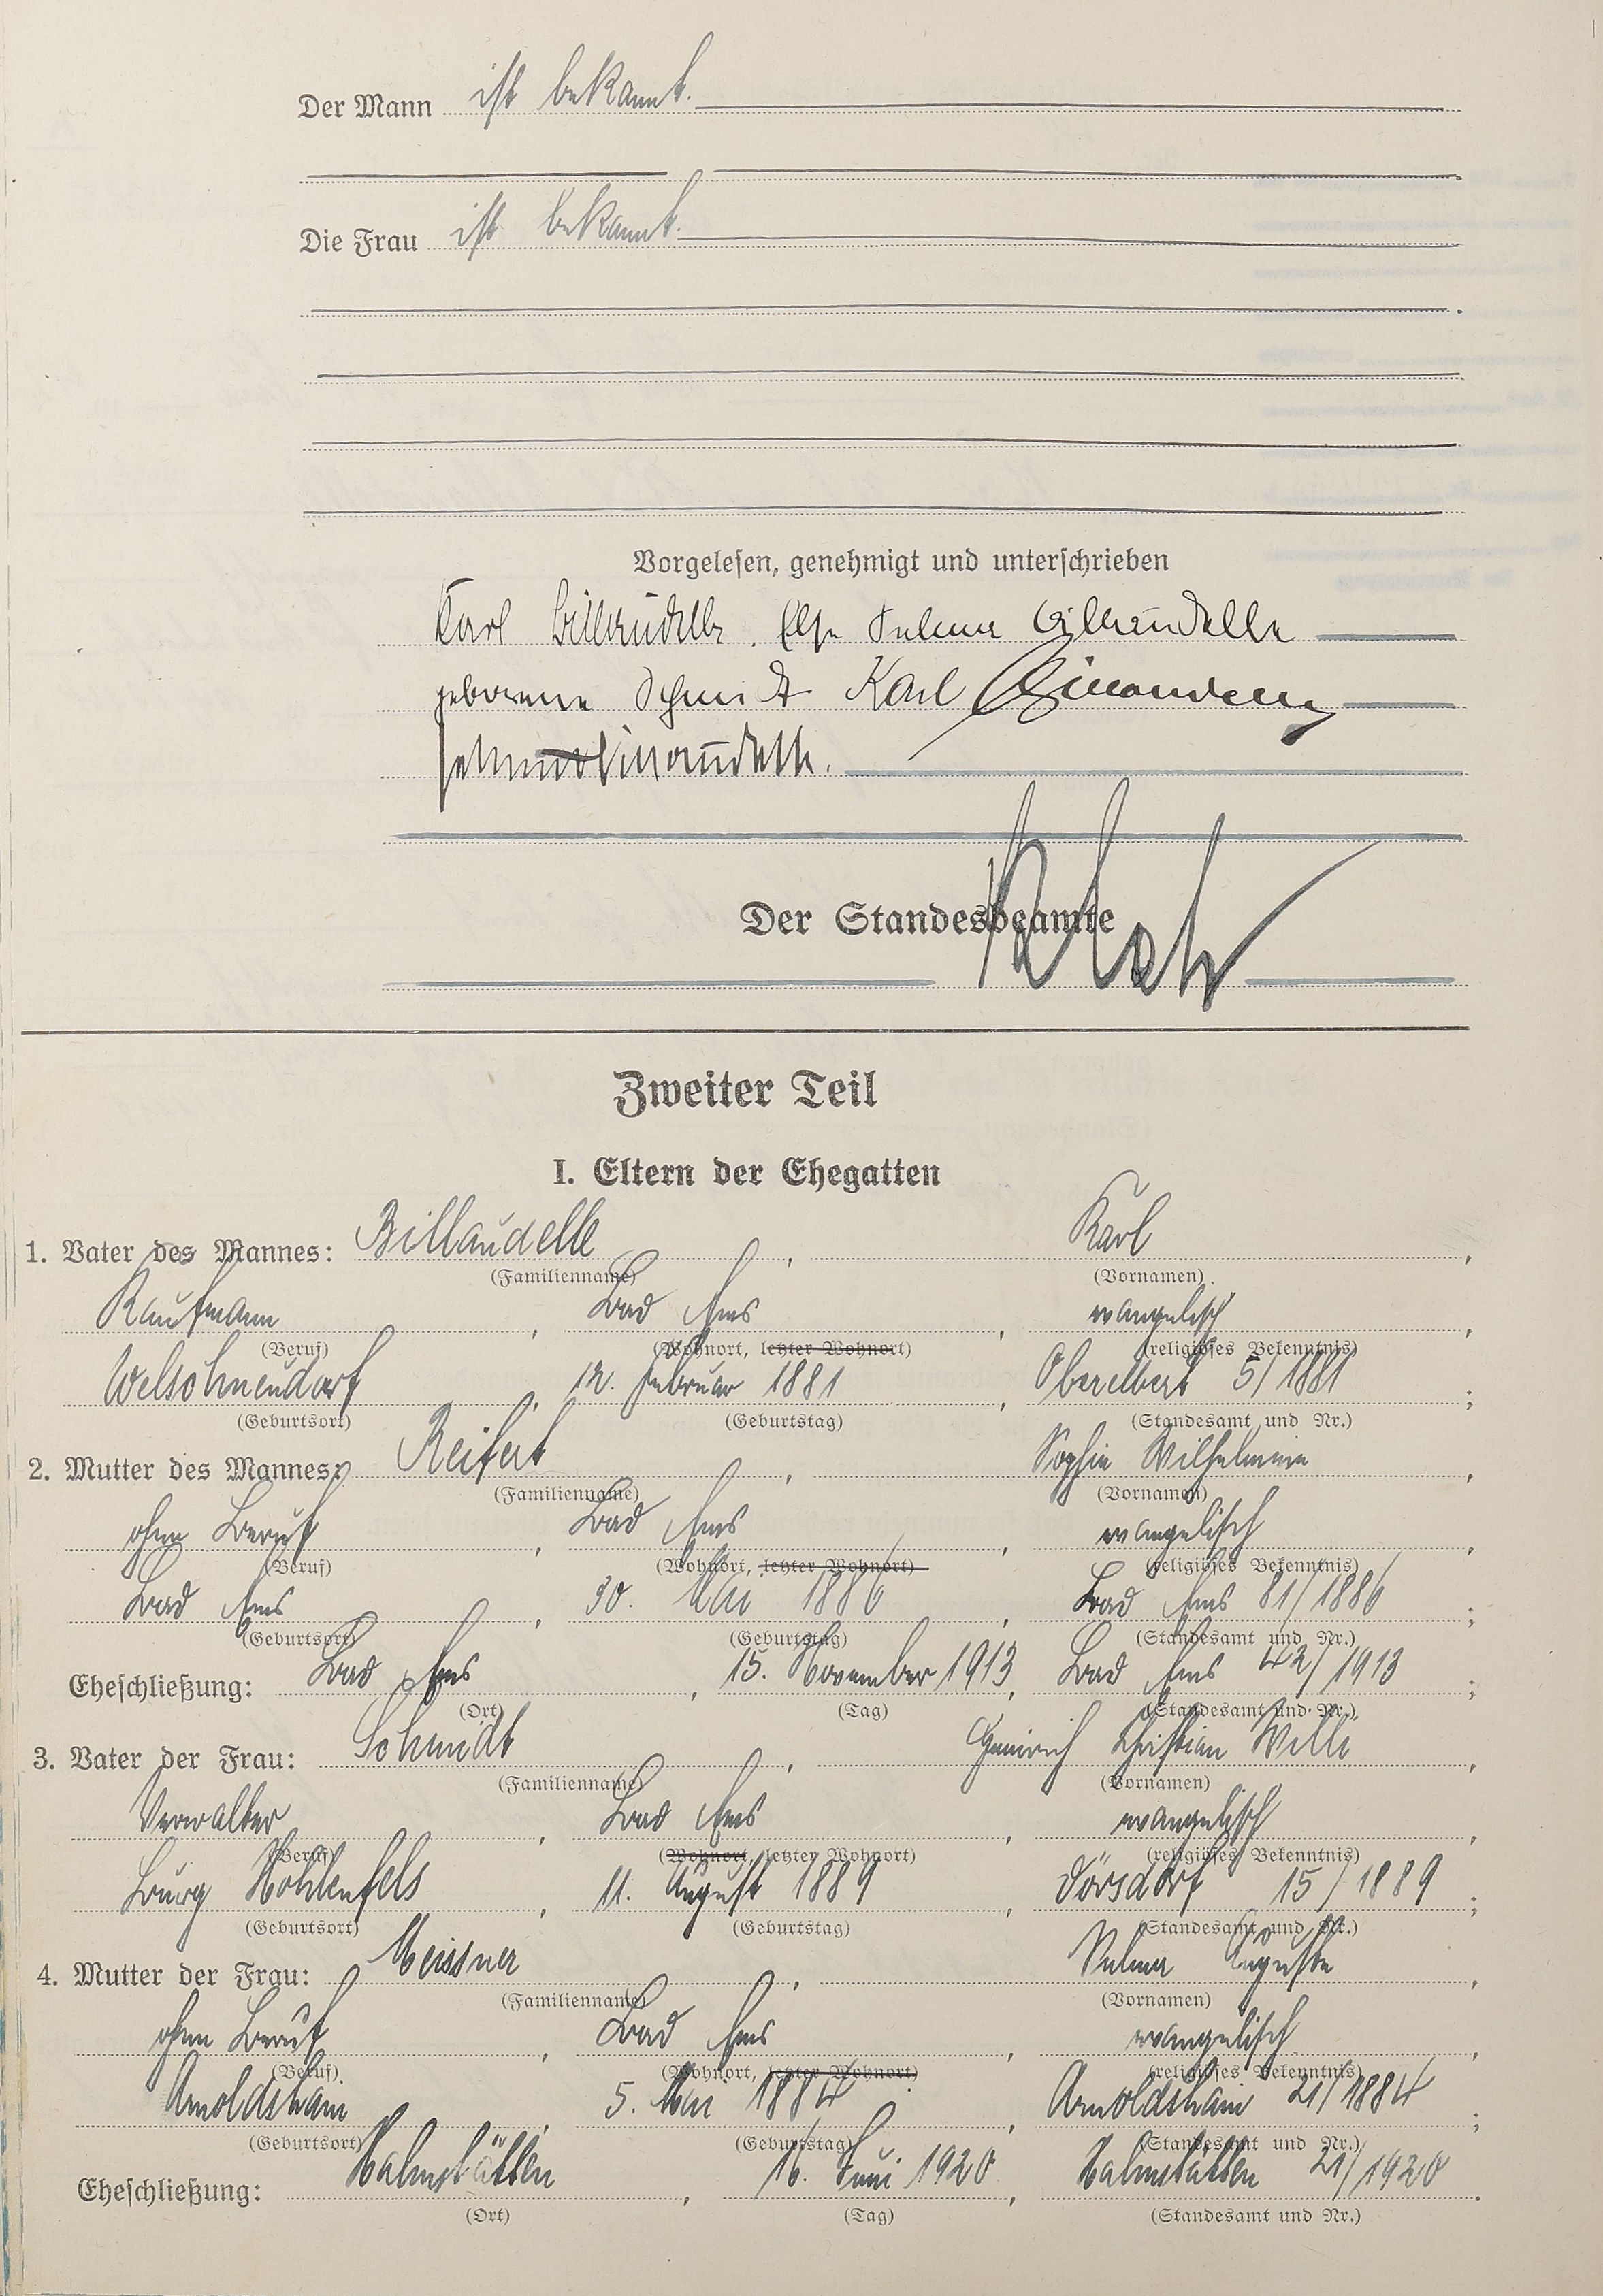 Der Mann ist bekannt.
Die Frau ist bekannt.
Vorgelesen, genehmigt und unterschrieben
Karl Billaudelle. Else Selma Billaudelle
geborene Schmidt Karl
Billaudelle.
Der Standesbeamte
Zweiter Teil
I. Eltern der Ehegatten
1. Vater des Mannes: Billaudelle, Karl,
(Familienname) (Vornamen)
Kaufmann, Bad Ems, evangelisch,
(Beruf) (Wohnort, letzter Wohnort) (religiöses Bekenntnis)
Welschneudorf, 12. Februar 1881, Oberelbert 5/1881;
(Geburtsort) (Geburtstag) (Standesamt und Nr.)
2. Mutter des Mannes: Reifert, Sophie Wilhelmine,
(Familienname) (Vornamen)
ohne Beruf, Bad Ems, evangelisch,
(Beruf) (Wohnort, letzter Wohnort) (religiöses Bekenntnis)
Bad Ems, 30. Mai 1886, Bad Ems 81/1886;
(Geburtsort) (Geburtstag) (Standesamt und Nr.)
Eheschließung: Bad Ems, 15. November 1913, Bad Ems 42/1913;
(Ort) (Tag) (Standesamt und Nr.)
3. Vater der Frau: Schmidt, Heinrich Christian Willi,
(Familienname) (Vornamen)
Verwalter, Bad Ems, evangelisch,
(Beruf) (Wohnort, letzter Wohnort) (religiöses Bekenntnis)
Burg Hohlenfels, 11. August 1889, Dörsdorf 15/1889;
(Geburtsort) (Geburtstag) (Standesamt und Nr.)
4. Mutter der Frau: Meissner, Selma Auguste,
(Familienname) (Vornamen)
ohne Beruf, Bad Ems, evangelisch,
(Beruf) (Wohnort, letzter Wohnort) (religiöses Bekenntnis)
Arnoldshain, 5. Mai 1884, Arnoldshain 21/1884;
(Geburtsort) (Geburtstag) (Standesamt und Nr.)
Eheschließung: Hahnstätten, 16. Juni 1920, Hahnstätten 21/1920.
(Ort) (Tag) (Standesamt und Nr.)